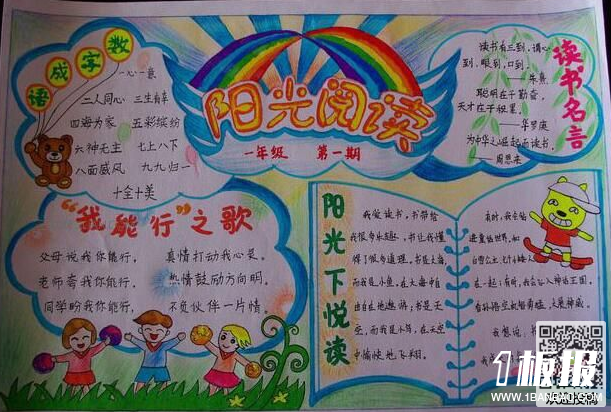 数字成语
一心一意
二人同心 三生有幸
四海为家 五彩缤纷
六神无主 七上八下
八面威风 九九归一
十全十美
阳光阅读
一年级 第一期
读书名言
读书有三到，谓心
到，眼到，口到。
——朱熹
聪明在于勤奋，
天才在于积累。
——华罗庚
为中华之崛起而读书。
——周恩来
“我能行”之歌
父母说我你能行， 真情打动我心灵。
老师夸我你能行， 热情鼓励方向明。
同学盼我你能行， 不负伙伴一片情。
阳光下悦读
我爱读书，书带给
我很多乐趣，书让我懂
得了很多道理。书是大海，
而我是小鱼，在大海中自
由自在地遨游；书是天
空，而我是小鸟，在天空
中愉快地飞翔。
有时，我会
进童话世界，和
白雪公主、七个小矮人
在一起；有时，我会
看孙悟空
我想说，书
1板报
WWW.1BANBAO.COM
欢迎投稿